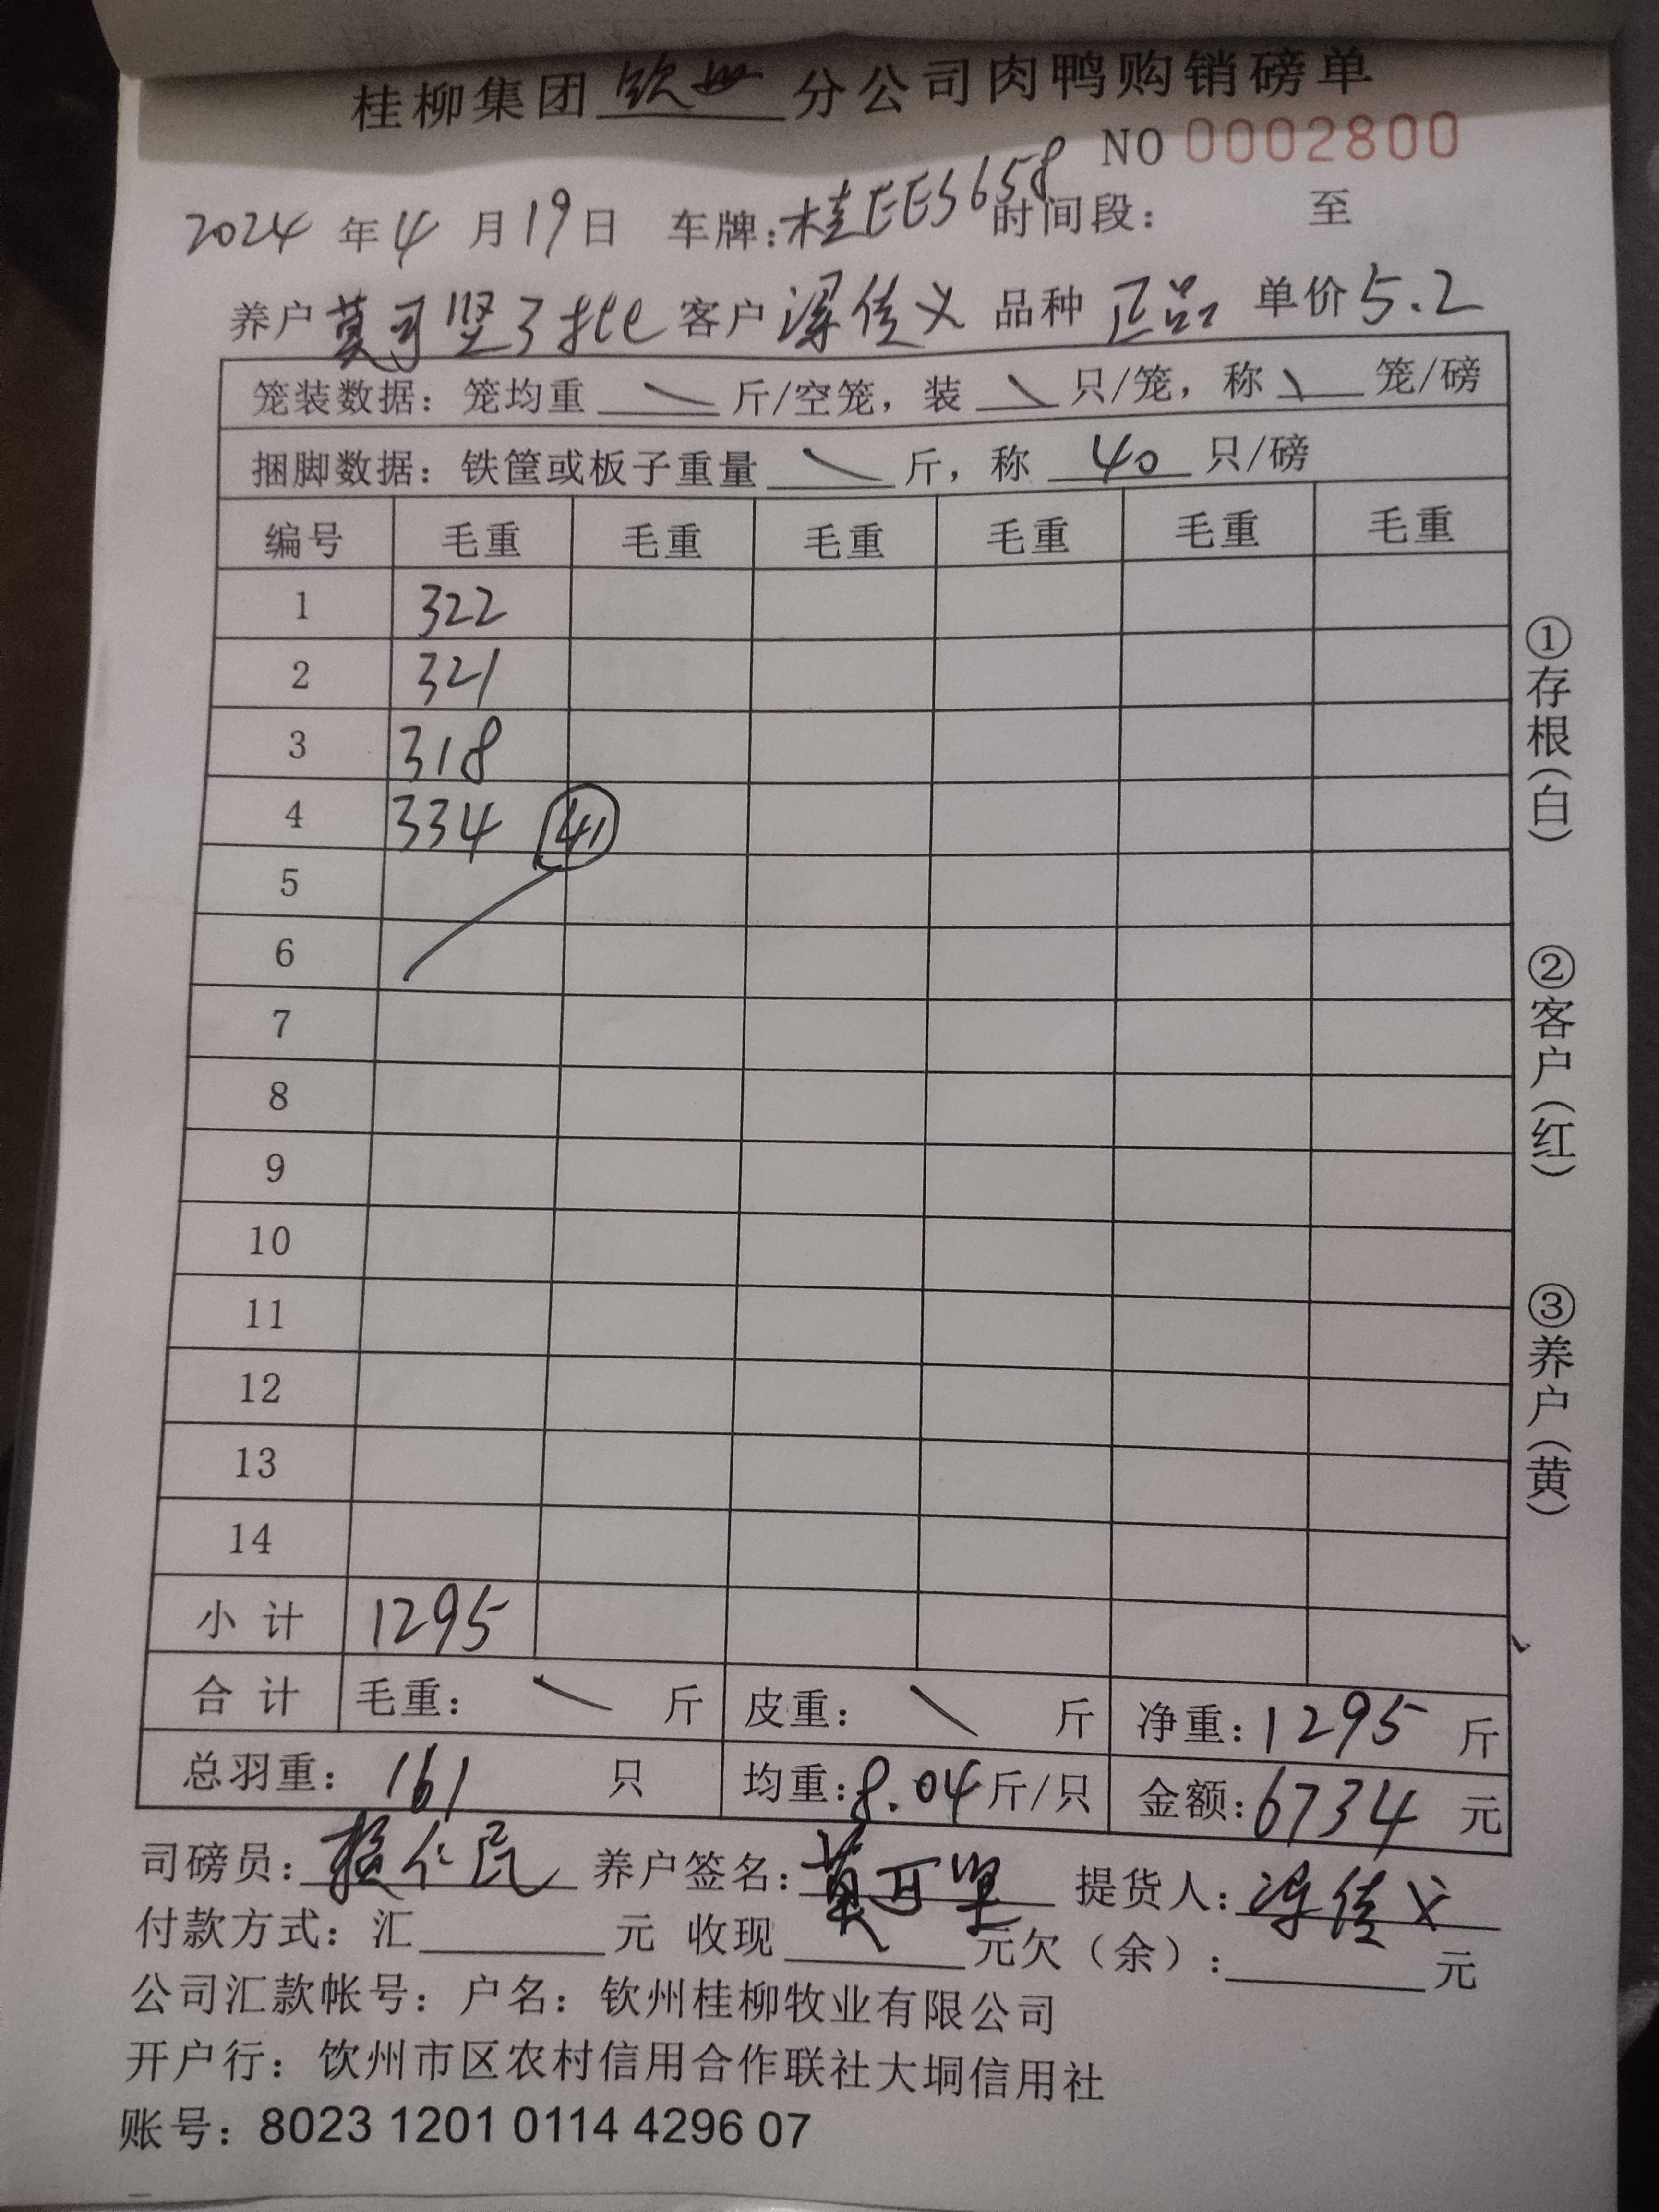 桂柳集团 钦州 分公司肉鸭购销磅单
NO 0002800
2024 年 4 月 19 日 车牌:桂EE5658 时间段: 至
养户 莫可坚3批 客户 梁佳义 品种 正品 单价 5.2
笼装数据:笼均重 \ 斤/空笼,装 \ 只/笼,称 \ 笼/磅
捆脚数据:铁筐或板子重量 \ 斤,称 40 只/磅
编号 毛重 毛重 毛重 毛重 毛重 毛重
1 322
2 321
3 318
4 334 41
5
6
7
8
9
10
11
12
13
14
小计 1295
合计 毛重: \ 斤 皮重: \ 斤 净重:1295 斤
总羽重: 161 只 均重:8.04 斤/只 金额:6734 元
司磅员: 仁民 养户签名:莫可坚 提货人: 佳义
付款方式:汇 元 收现 元欠(余): 元
公司汇款帐号:户名:钦州桂柳牧业有限公司
开户行:钦州市区农村信用合作联社大垌信用社
账号:8023 1201 0114 4296 07
①存根(白)
②客户(红)
③养户(黄)